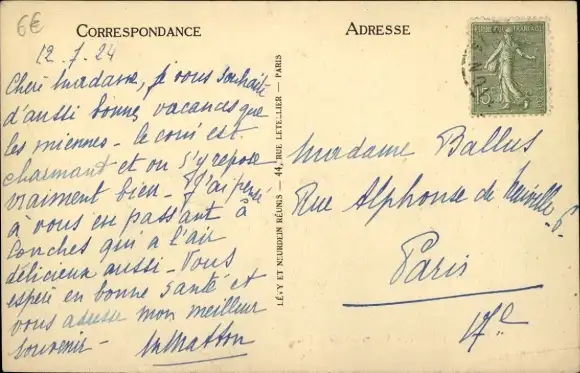 6€
CORRESPONDANCE
ADRESSE
12.7.24
Chère Madame, je vous souhaite
d'aussi bonnes vacances que
les miennes - le coin est
charmant et on s'y repose
vraiment bien - J'ai pensé
à vous en passant à
Conches qui a l'air
délicieux aussi - Vous
espère en bonne santé et
vous adresse mon meilleur
souvenir -
LÉVY ET NEURDEIN RÉUNIS - 44, RUE LETELLIER - PARIS
Madame Ballus
Rue Alphonse de Neuville
Paris
17e
15